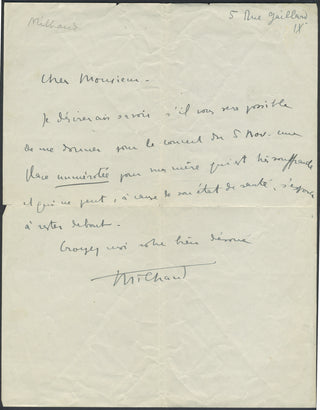 Milhaud
5 Rue Gaillard
IX
Cher Monsieur -
Je désirerais savoir s'il vous sera possible
de me donner pour le concert du 5 Nov. une
place numérotée pour ma mère qui est très souffrante
et qui ne peut, à cause de son état de santé, s'exposer
à rester debout.
Croyez moi votre bien dévoué
Milhaud